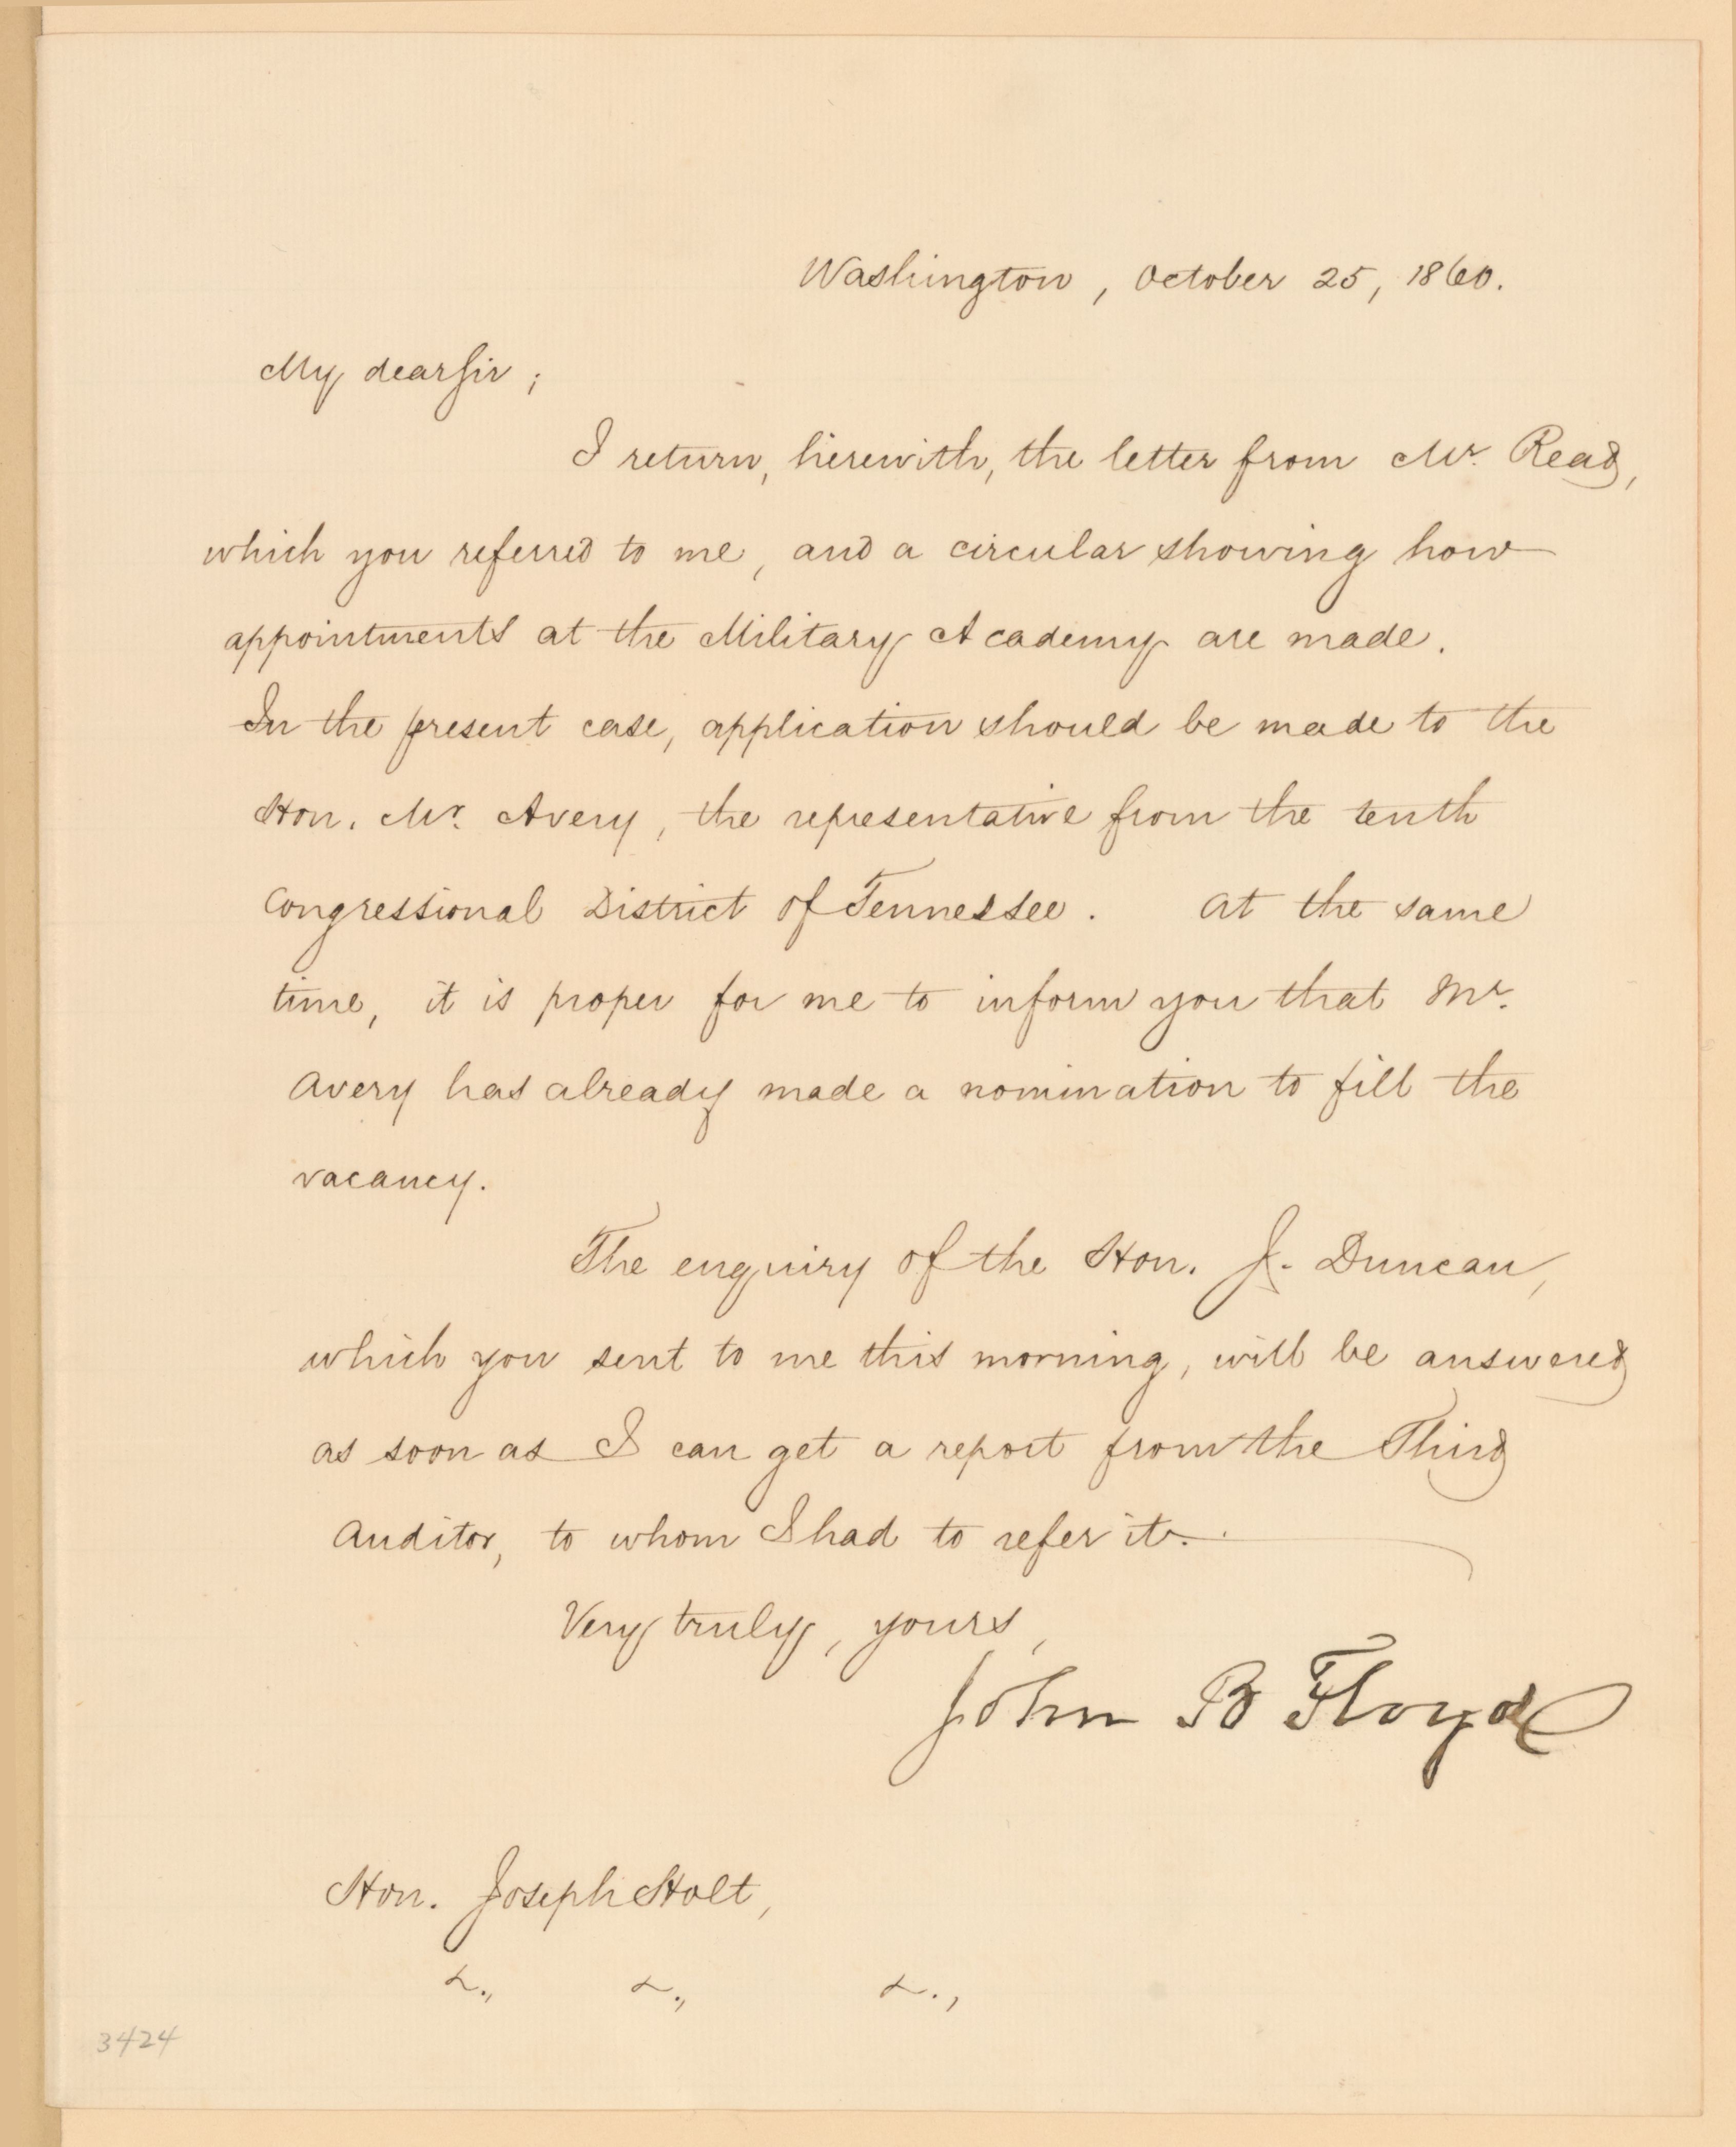 Washington, October 25, 1860.
My dear Sir;
I return, herewith, the letter from Mr. Read,
which you referred to me, and a circular showing how
appointments at the Military Academy are made.
In the present case, application should be made to the
Hon. Mr. Avery, the representative from the tenth
Congressional District of Tennessee. At the same
time, it is proper for me to inform you that Mr.
Avery has already made a nomination to fill the
vacancy.
The enquiry of the Hon. J. Duncan,
which you sent to me this morning, will be answered
as soon as I can get a report from the Third
Auditor, to whom I had to refer it.
Very truly, yours,
John B Floyd
Hon. Joseph Holt,
&., &., &.,
3424